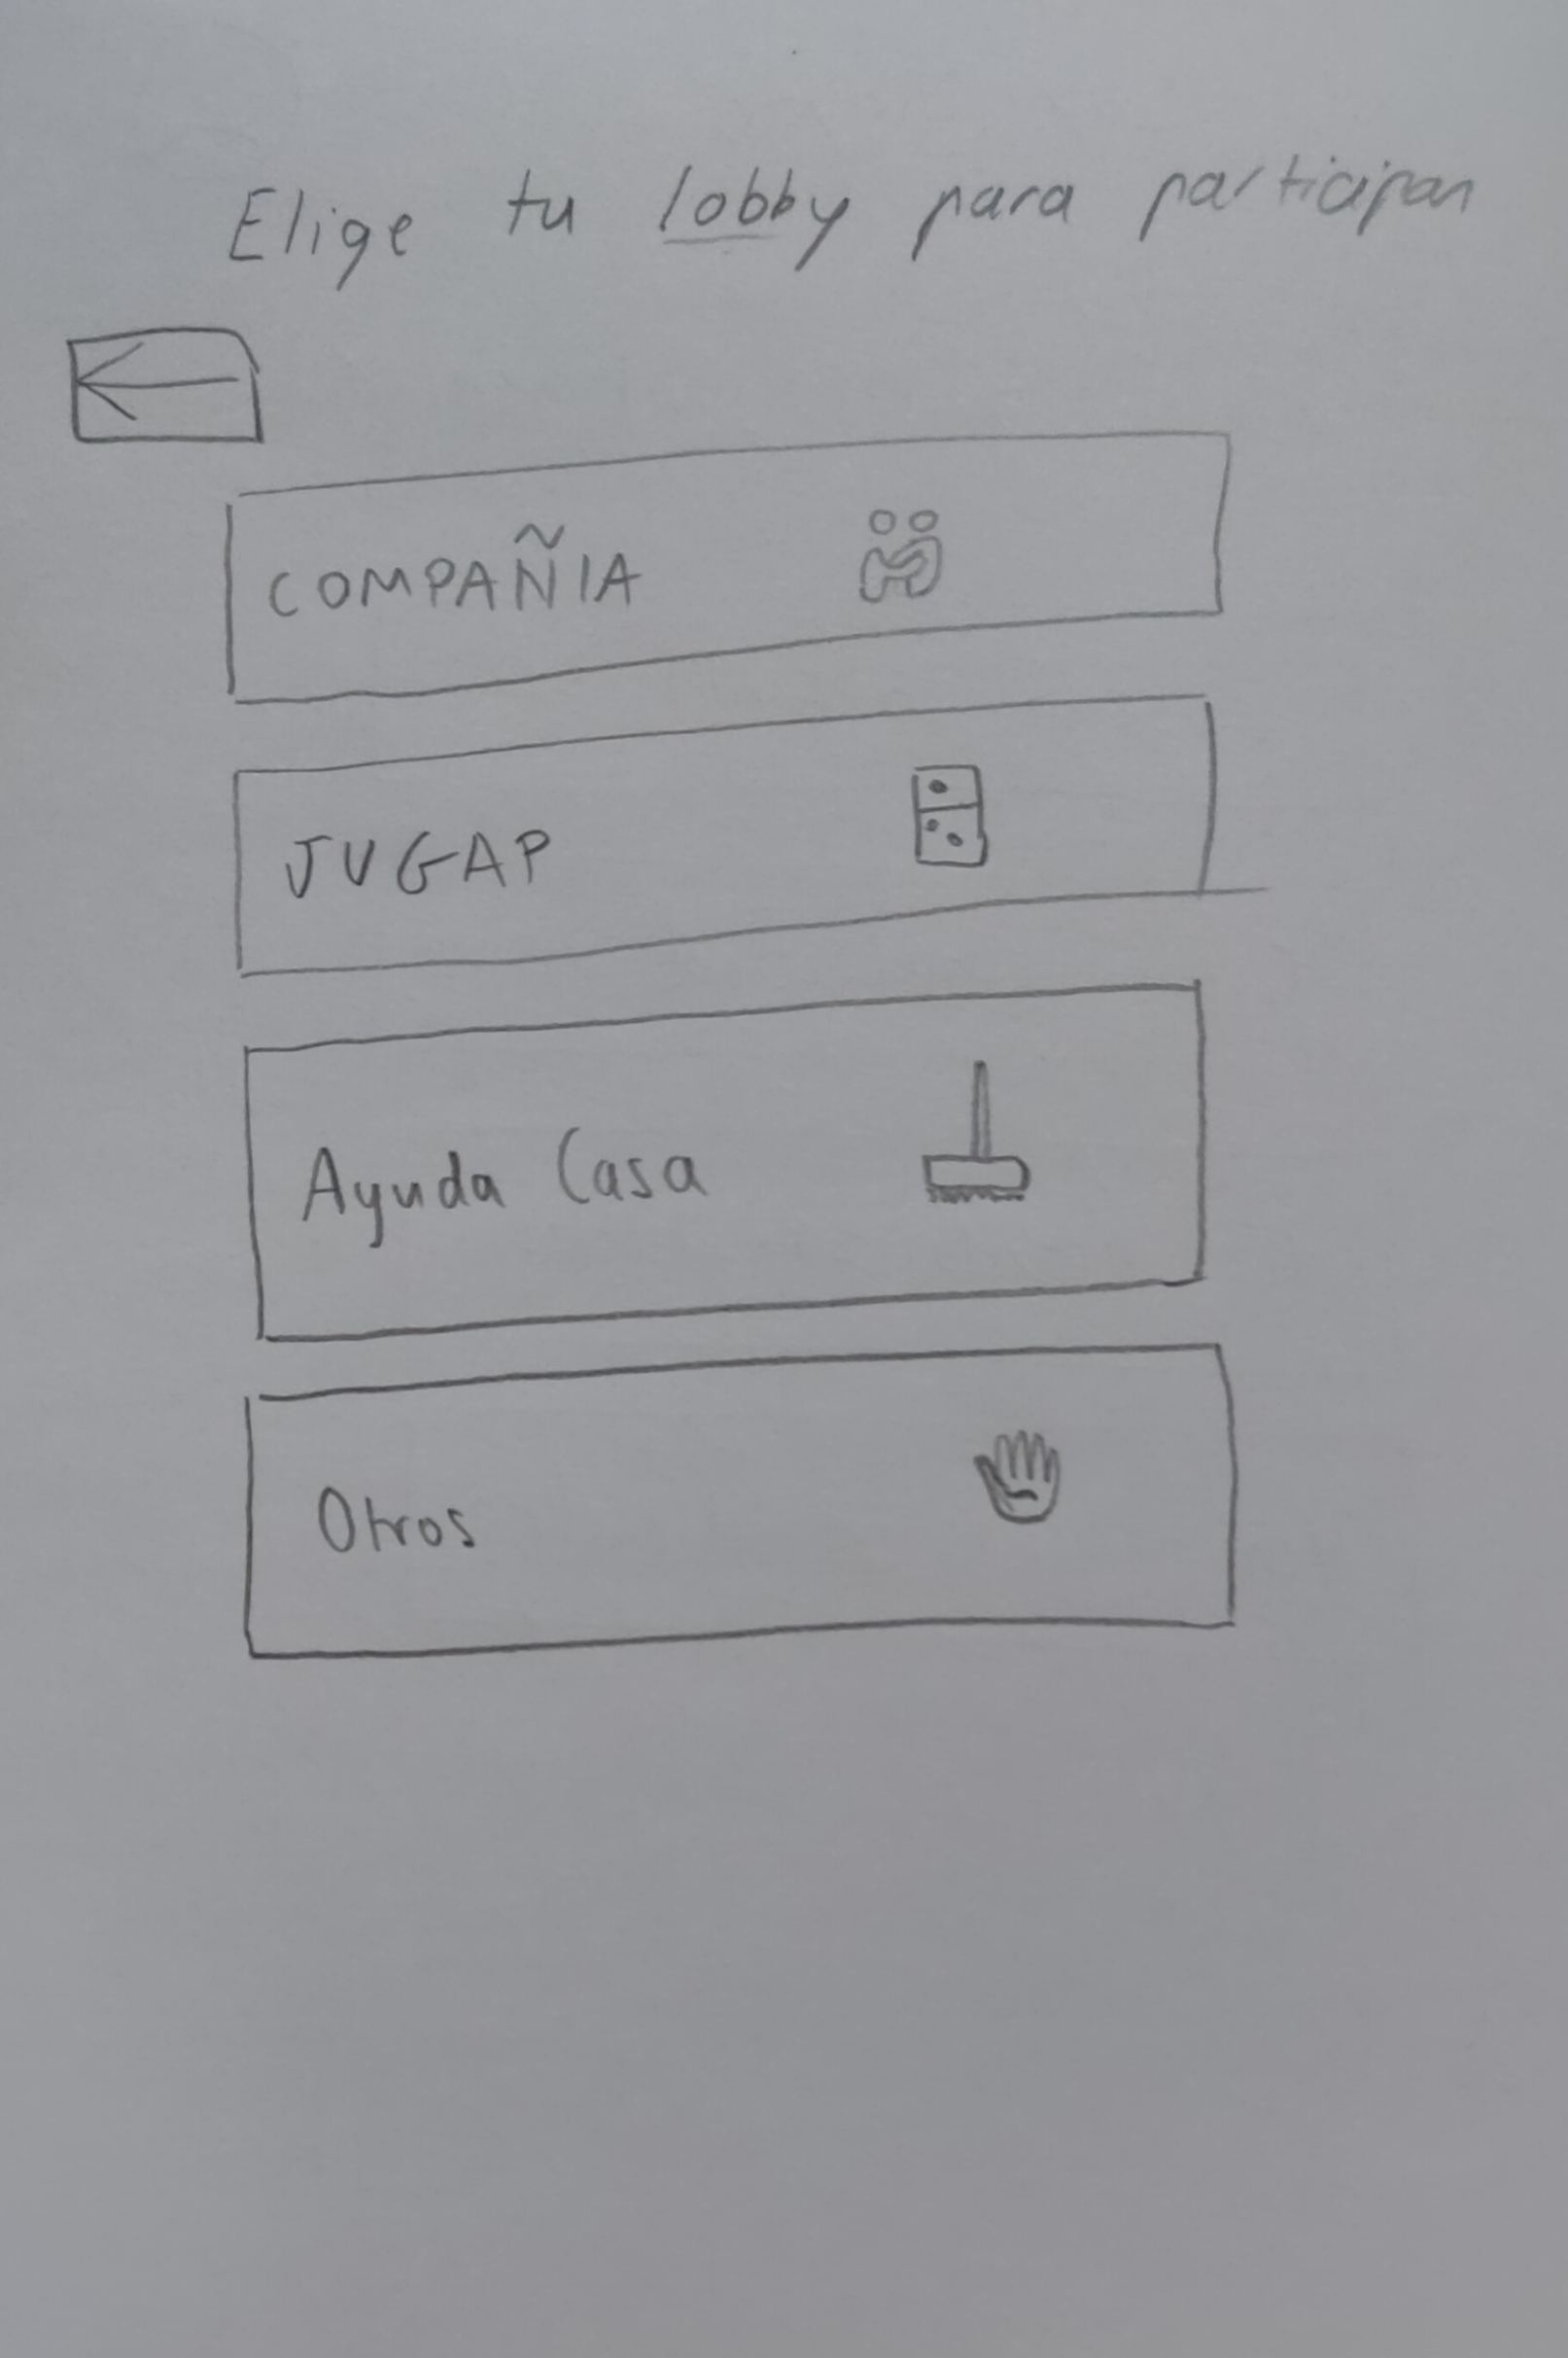 Elige tu lobby para participar
COMPAÑIA
JUGAR
Ayuda Casa
Otros